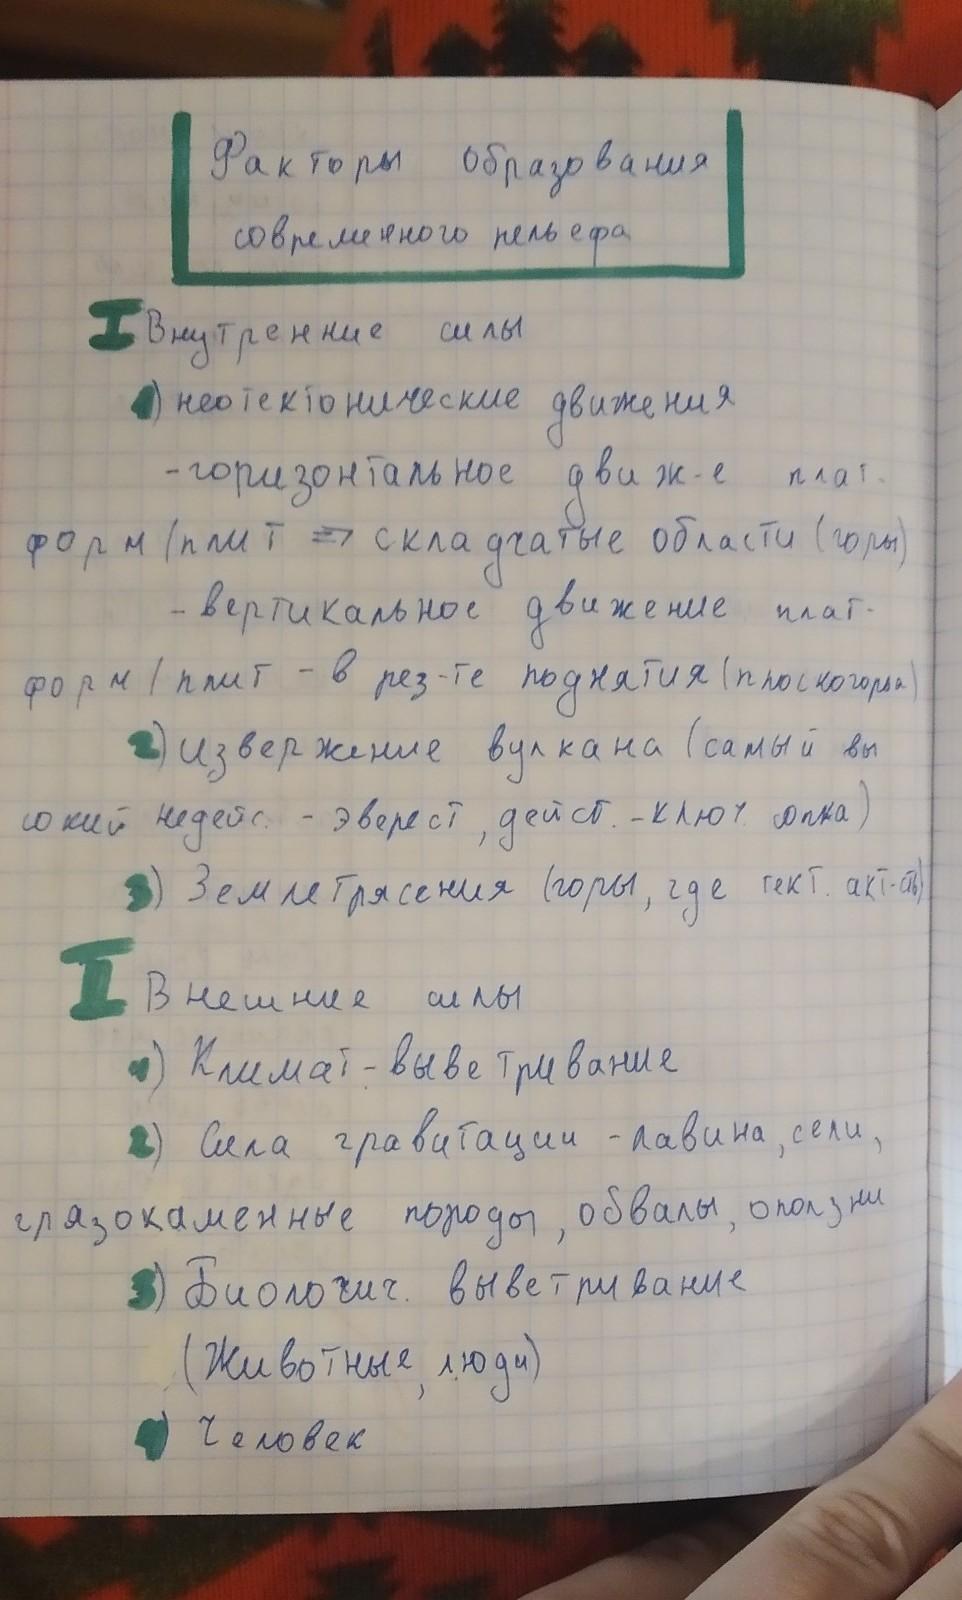 Факторы образования
современного рельефа
I Внутренние силы
1) неотектонические движения
- горизонтальное движ-е плат-
форм / плит => складчатые области (горы)
- вертикальное движение плат-
форм / плит - в рез-те поднятия (плоскогорья)
2) извержение вулкана (самый вы
сокий недейс. - эверест, действ. - ключ. сопка)
3) Землетрясения (горы, где тект. акт-сть)
II Внешние силы
1) Климат - выветривание
2) Сила гравитации - лавина, сели,
грязокаменные породы, обвалы, оползни
3) Биологич. выветривание
(Животные, люди)
4) Человек